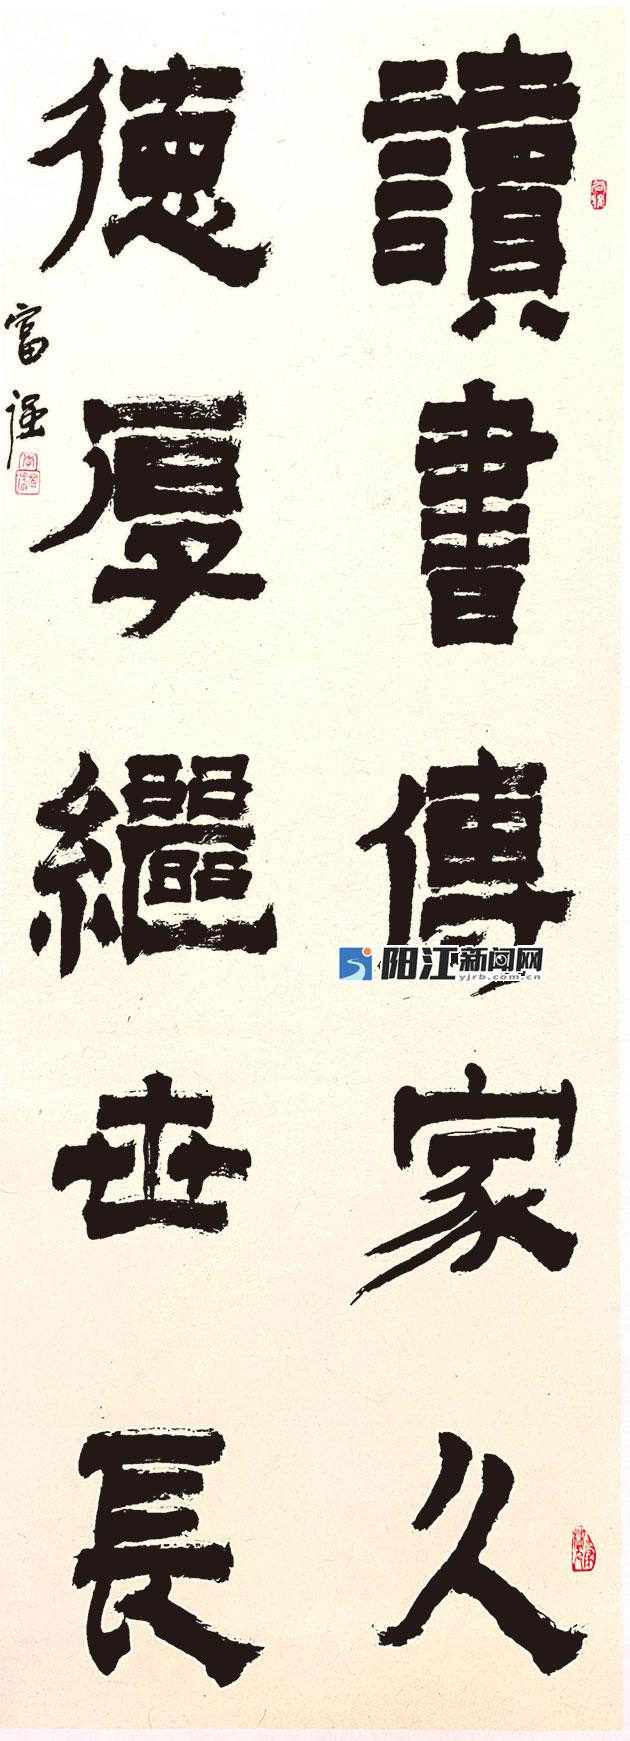 讀書傳家久
德厚繼世長
富强
阳江新闻网
yjrb.com.cn